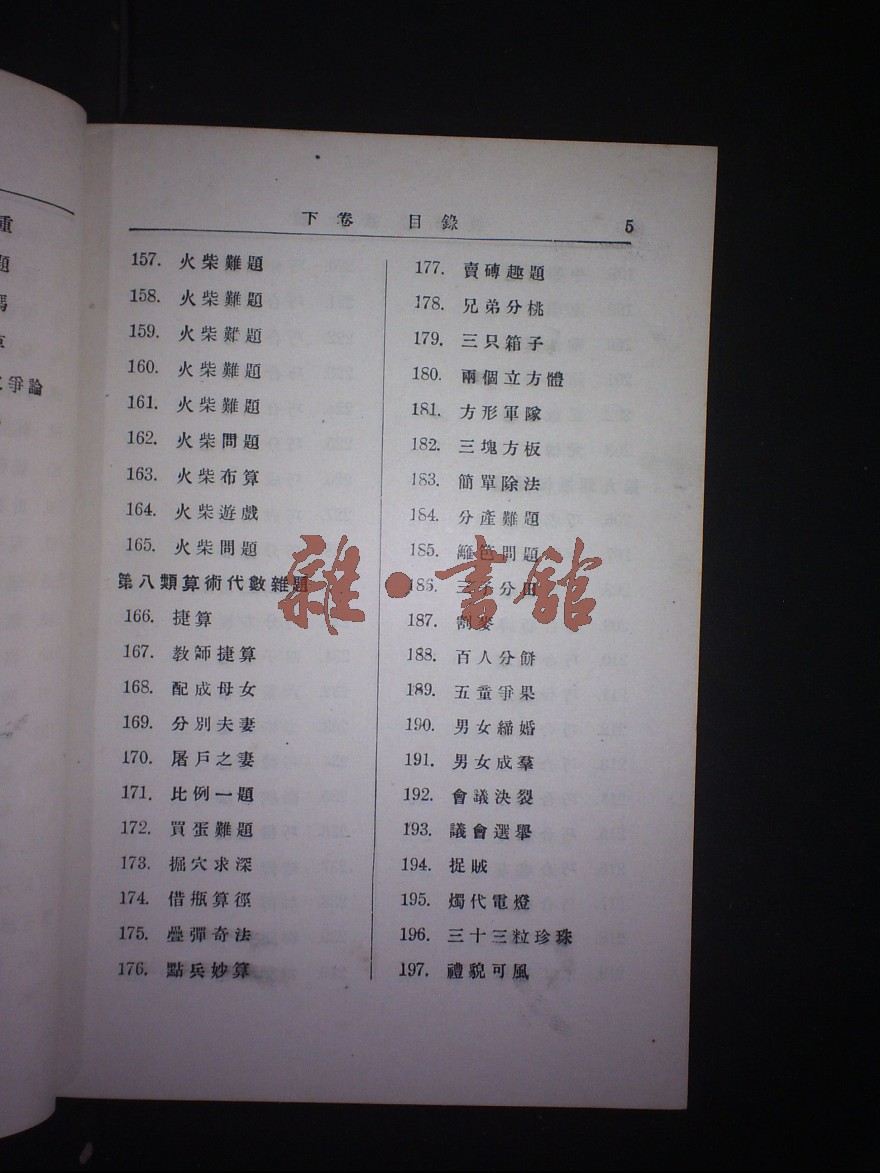 下卷 目錄 5
157. 火柴難題
158. 火柴難題
159. 火柴難題
160. 火柴難題
161. 火柴難題
162. 火柴問題
163. 火柴布算
164. 火柴遊戲
165. 火柴問題
第八類算術代數雜題
166. 捷算
167. 教師捷算
168. 配成母女
169. 分別夫妻
170. 屠戶之妻
171. 比例一題
172. 買蛋難題
173. 掘穴求深
174. 借瓶算徑
175. 疊彈奇法
176. 點兵妙算
177. 賣磚趣題
178. 兄弟分桃
179. 三只箱子
180. 兩個立方體
181. 方形軍隊
182. 三塊方板
183. 簡單除法
184. 分產難題
185. 籬笆問題
186. 三子分田
187. 割麥
188. 百人分餅
189. 五童爭果
190. 男女締婚
191. 男女成羣
192. 會議決裂
193. 議會選舉
194. 捉賊
195. 燭代電燈
196. 三十三粒珍珠
197. 禮貌可風
雜·書館
重
題
爭論